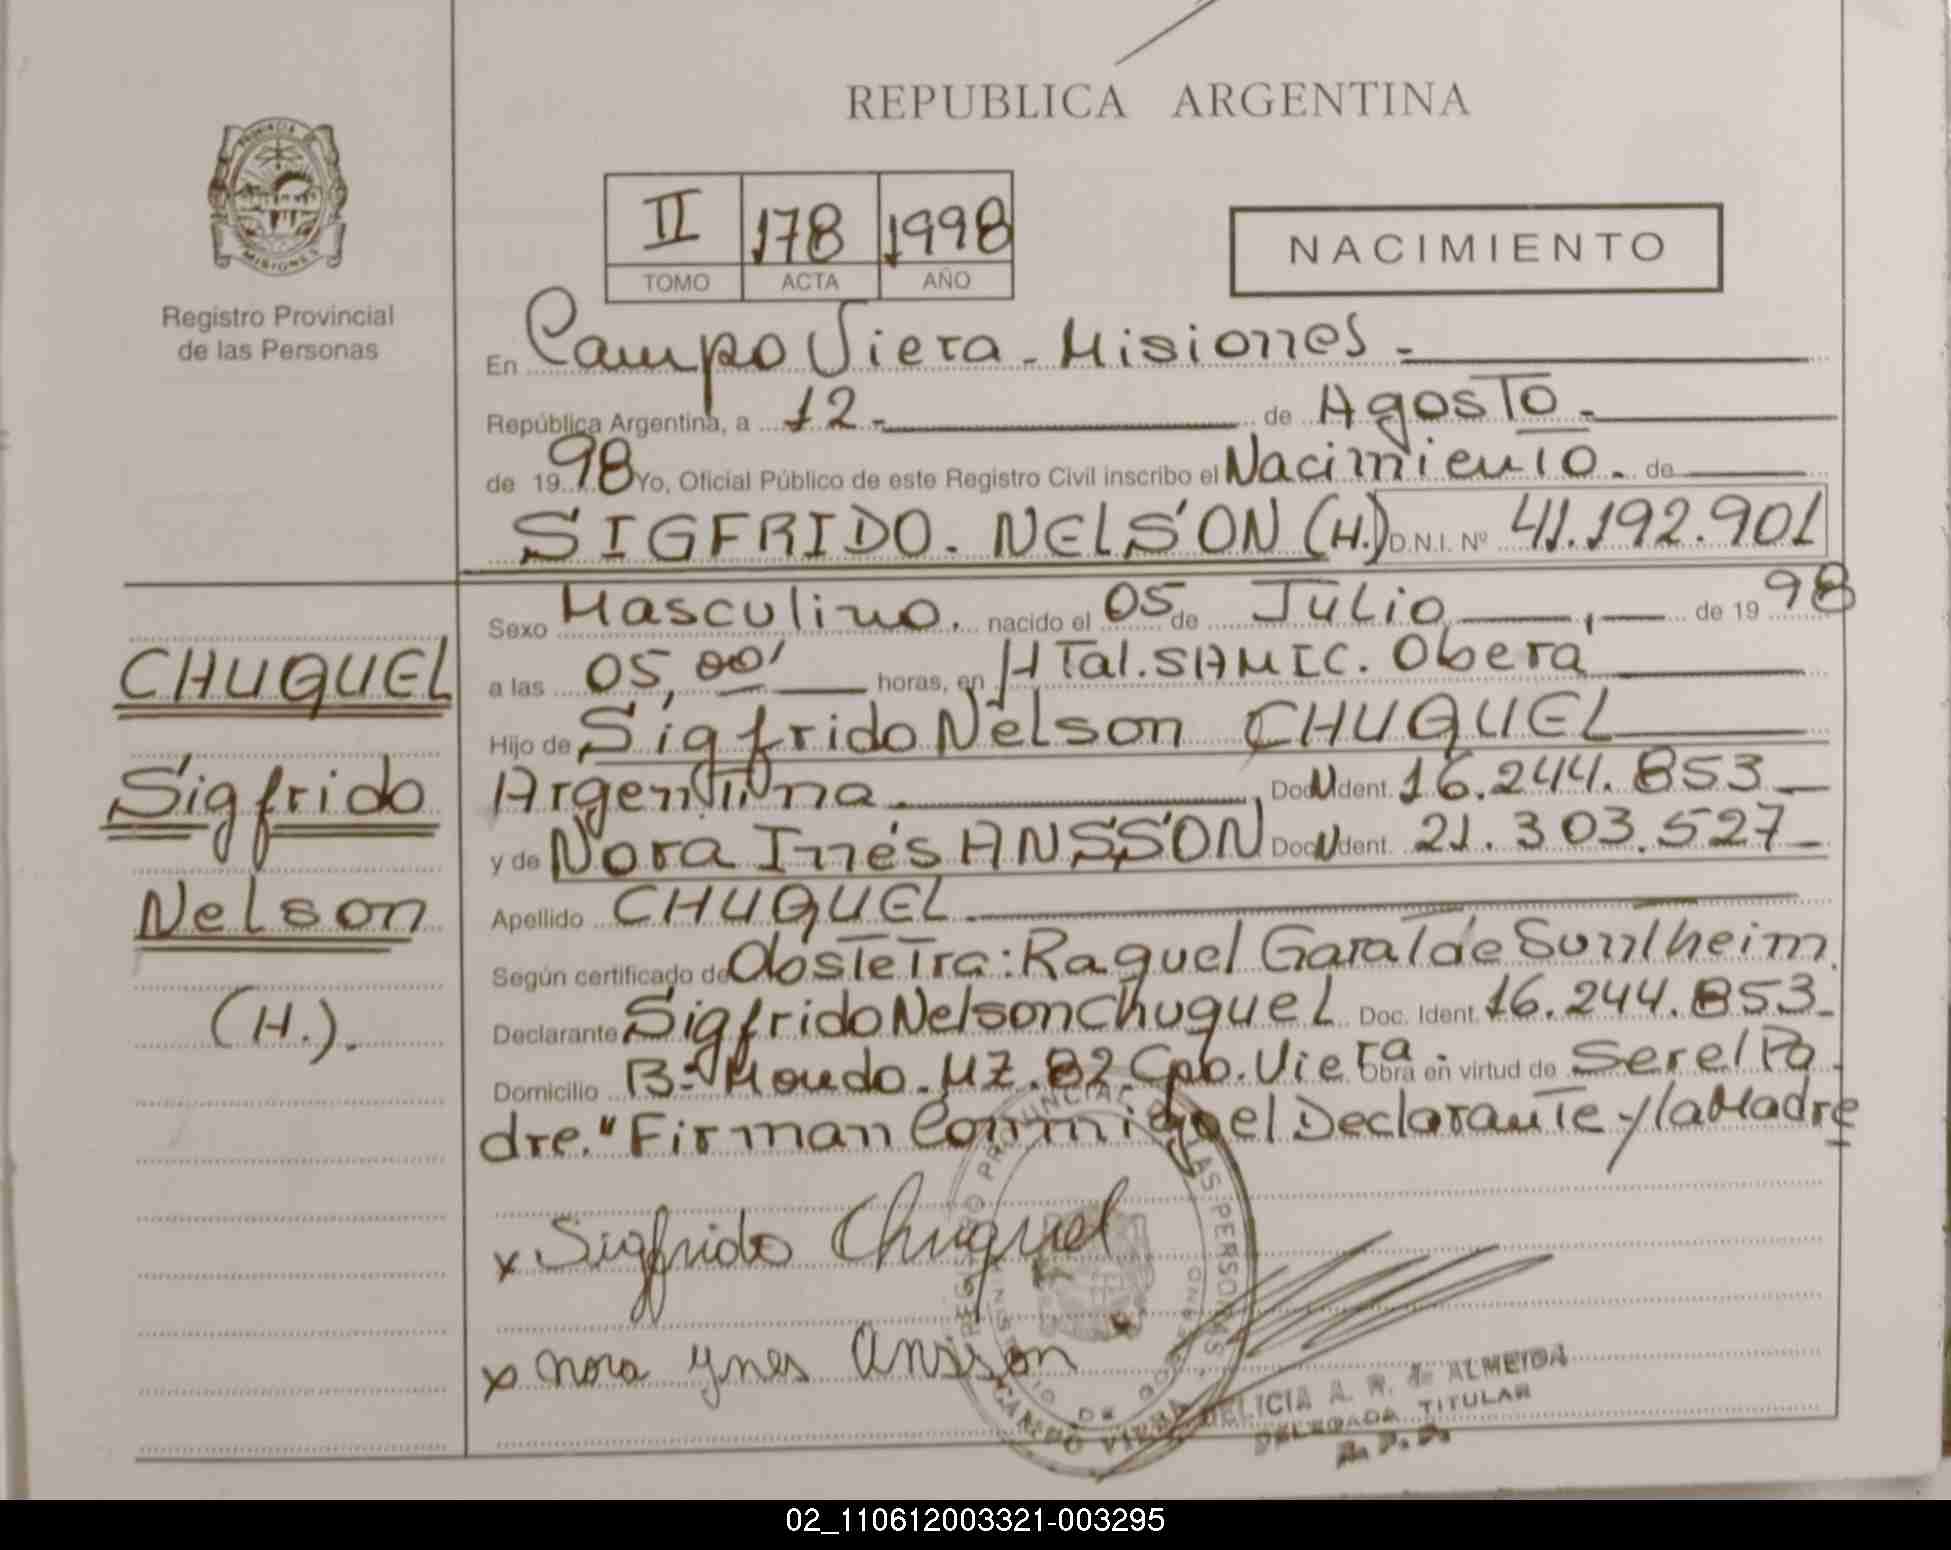 REPUBLICA ARGENTINA
PROVINCIA DE
MISIONES
Registro Provincial
de las Personas
II 178 1998
TOMO ACTA AÑO
NACIMIENTO
En Campo Viera - Misiones -
República Argentina, a 12 - de Agosto -
de 19 98 Yo, Oficial Público de este Registro Civil inscribo el Nacimiento. de
SIGFRIDO. NELSON (H.) D.N.I. Nº 41.192.901
Sexo Masculino. nacido el 05 de Julio de 19 98
a las 05,00' horas, en HTal. SAMIC. Oberá
Hijo de Sigfrido Nelson CHUQUEL
Argentina. Doc. Ident. 16.244.853
y de Nora Inés ANSSON Doc. Ident. 21.303.527
Apellido CHUQUEL
Según certificado de Obstetra: Raquel Garal de
Declarante Sigfrido Nelson Chuquel Doc. Ident. 16.244.853
Domicilio B: Mondo. MZ. 82 Cpo. Viera Obra en virtud de Ser el Pa
dre." Firman Conmigo el Declarante y la Madre
CHUQUEL
Sigfrido
Nelson
(H.).
x Sigfrido Chuquel
x Nora Ynes Ansson
REGISTRO PROVINCIAL DE LAS PERSONAS
MINISTERIO DE GOBIERNO
CAMPO VIERA
A. R. de ALMEIDA
DELEGADA TITULAR
R. P. P.
02_110612003321-003295